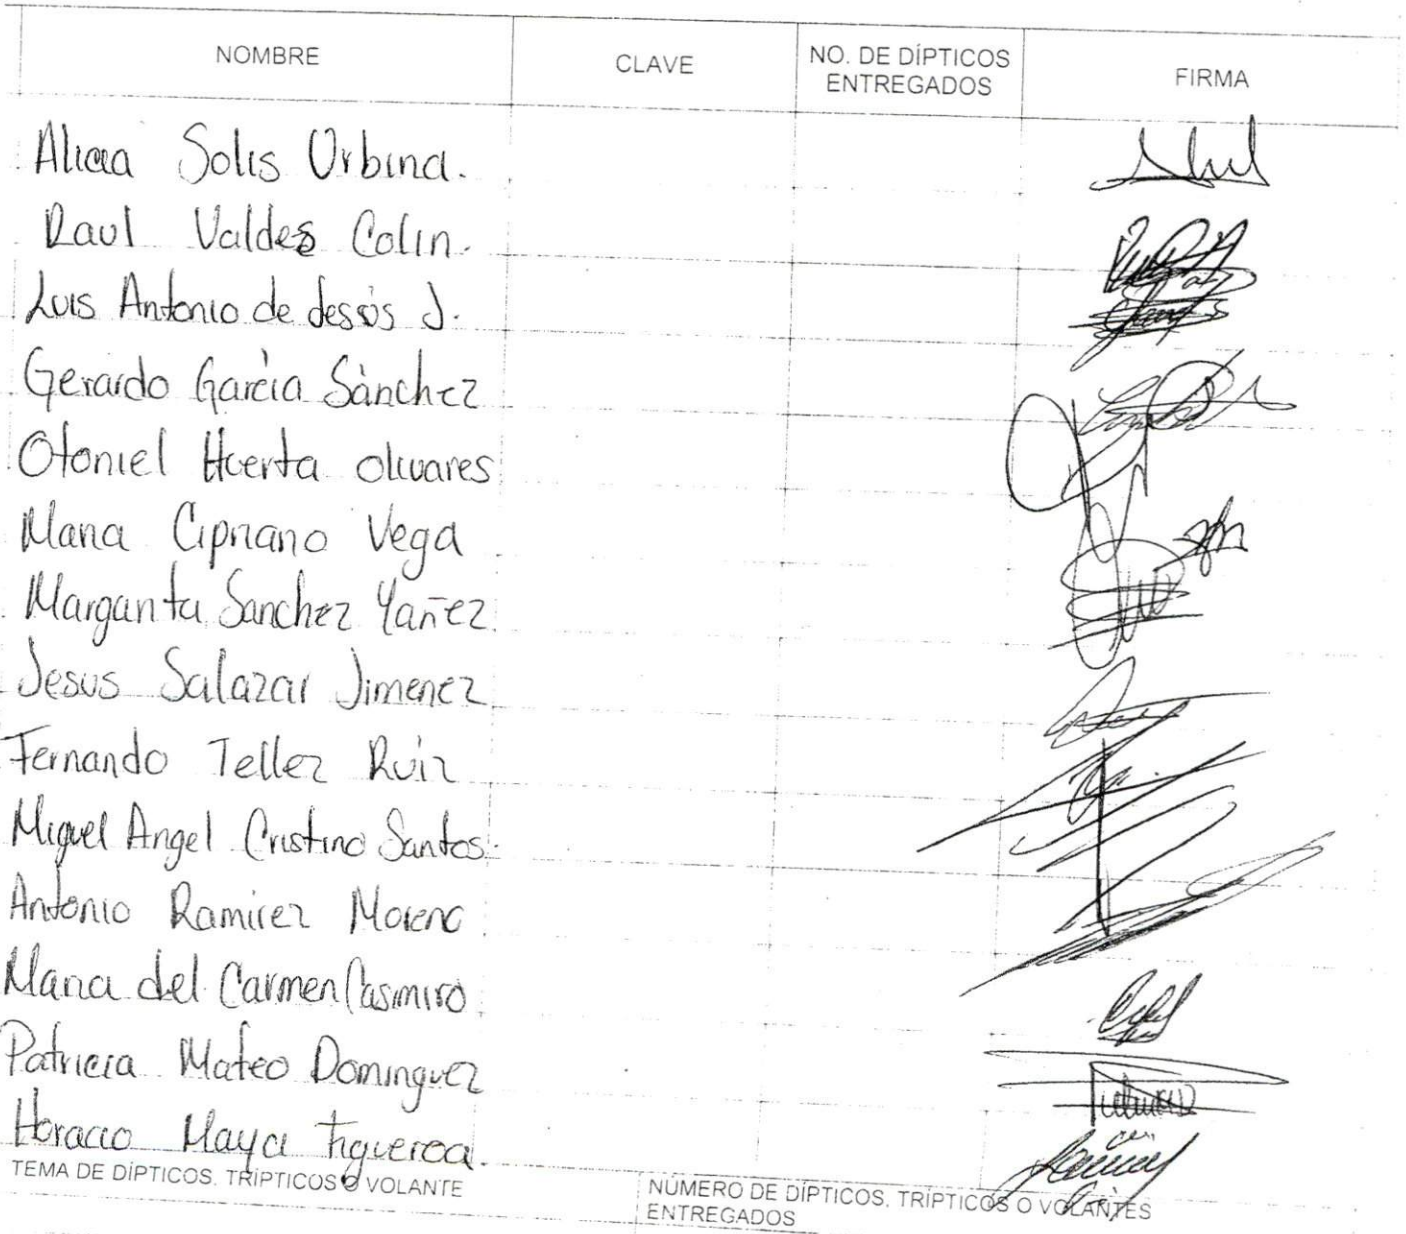 NOMBRE CLAVE NO. DE DÍPTICOS ENTREGADOS FIRMA
Alicia Solis Urbina.
Raul Valdes Colin.
Luis Antonio de Jesús J.
Gerardo Garcia Sánchez
Otoniel Huerta Olivares
Maria Cipriano Vega
Margarita Sanchez Yañez
Jesus Salazar Jimenez
Fernando Tellez Ruiz
Miguel Angel Cristino Santos
Antonio Ramirez Moreno
Maria del Carmen Casimiro
Patricia Mateo Dominguez
Horacio Maya Figueroa.
TEMA DE DÍPTICOS, TRÍPTICOS O VOLANTE
NÚMERO DE DÍPTICOS, TRÍPTICOS O VOLANTES
ENTREGADOS